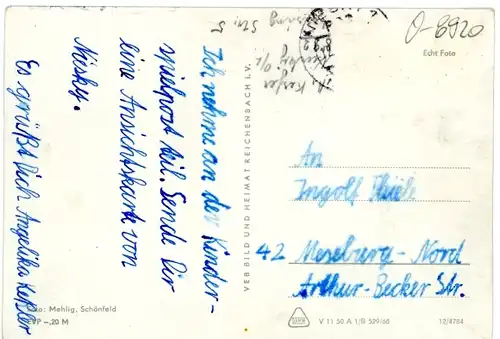 Ich nehme an der Kinder-
spielpost teil. Sende Dir
eine Ansichtskarte von
Niesky.
Es grüßt Dich Angelika Keßler
Foto: Mehlig, Schönfeld
EVP -,20 M
VEB BILD UND HEIMAT REICHENBACH I. V.
O-8920
Echt Foto
An
Ingolf
42 Merseburg-Nord
Arthur-Becker Str.
V 11 50 A 1/B 529/68
12/4784